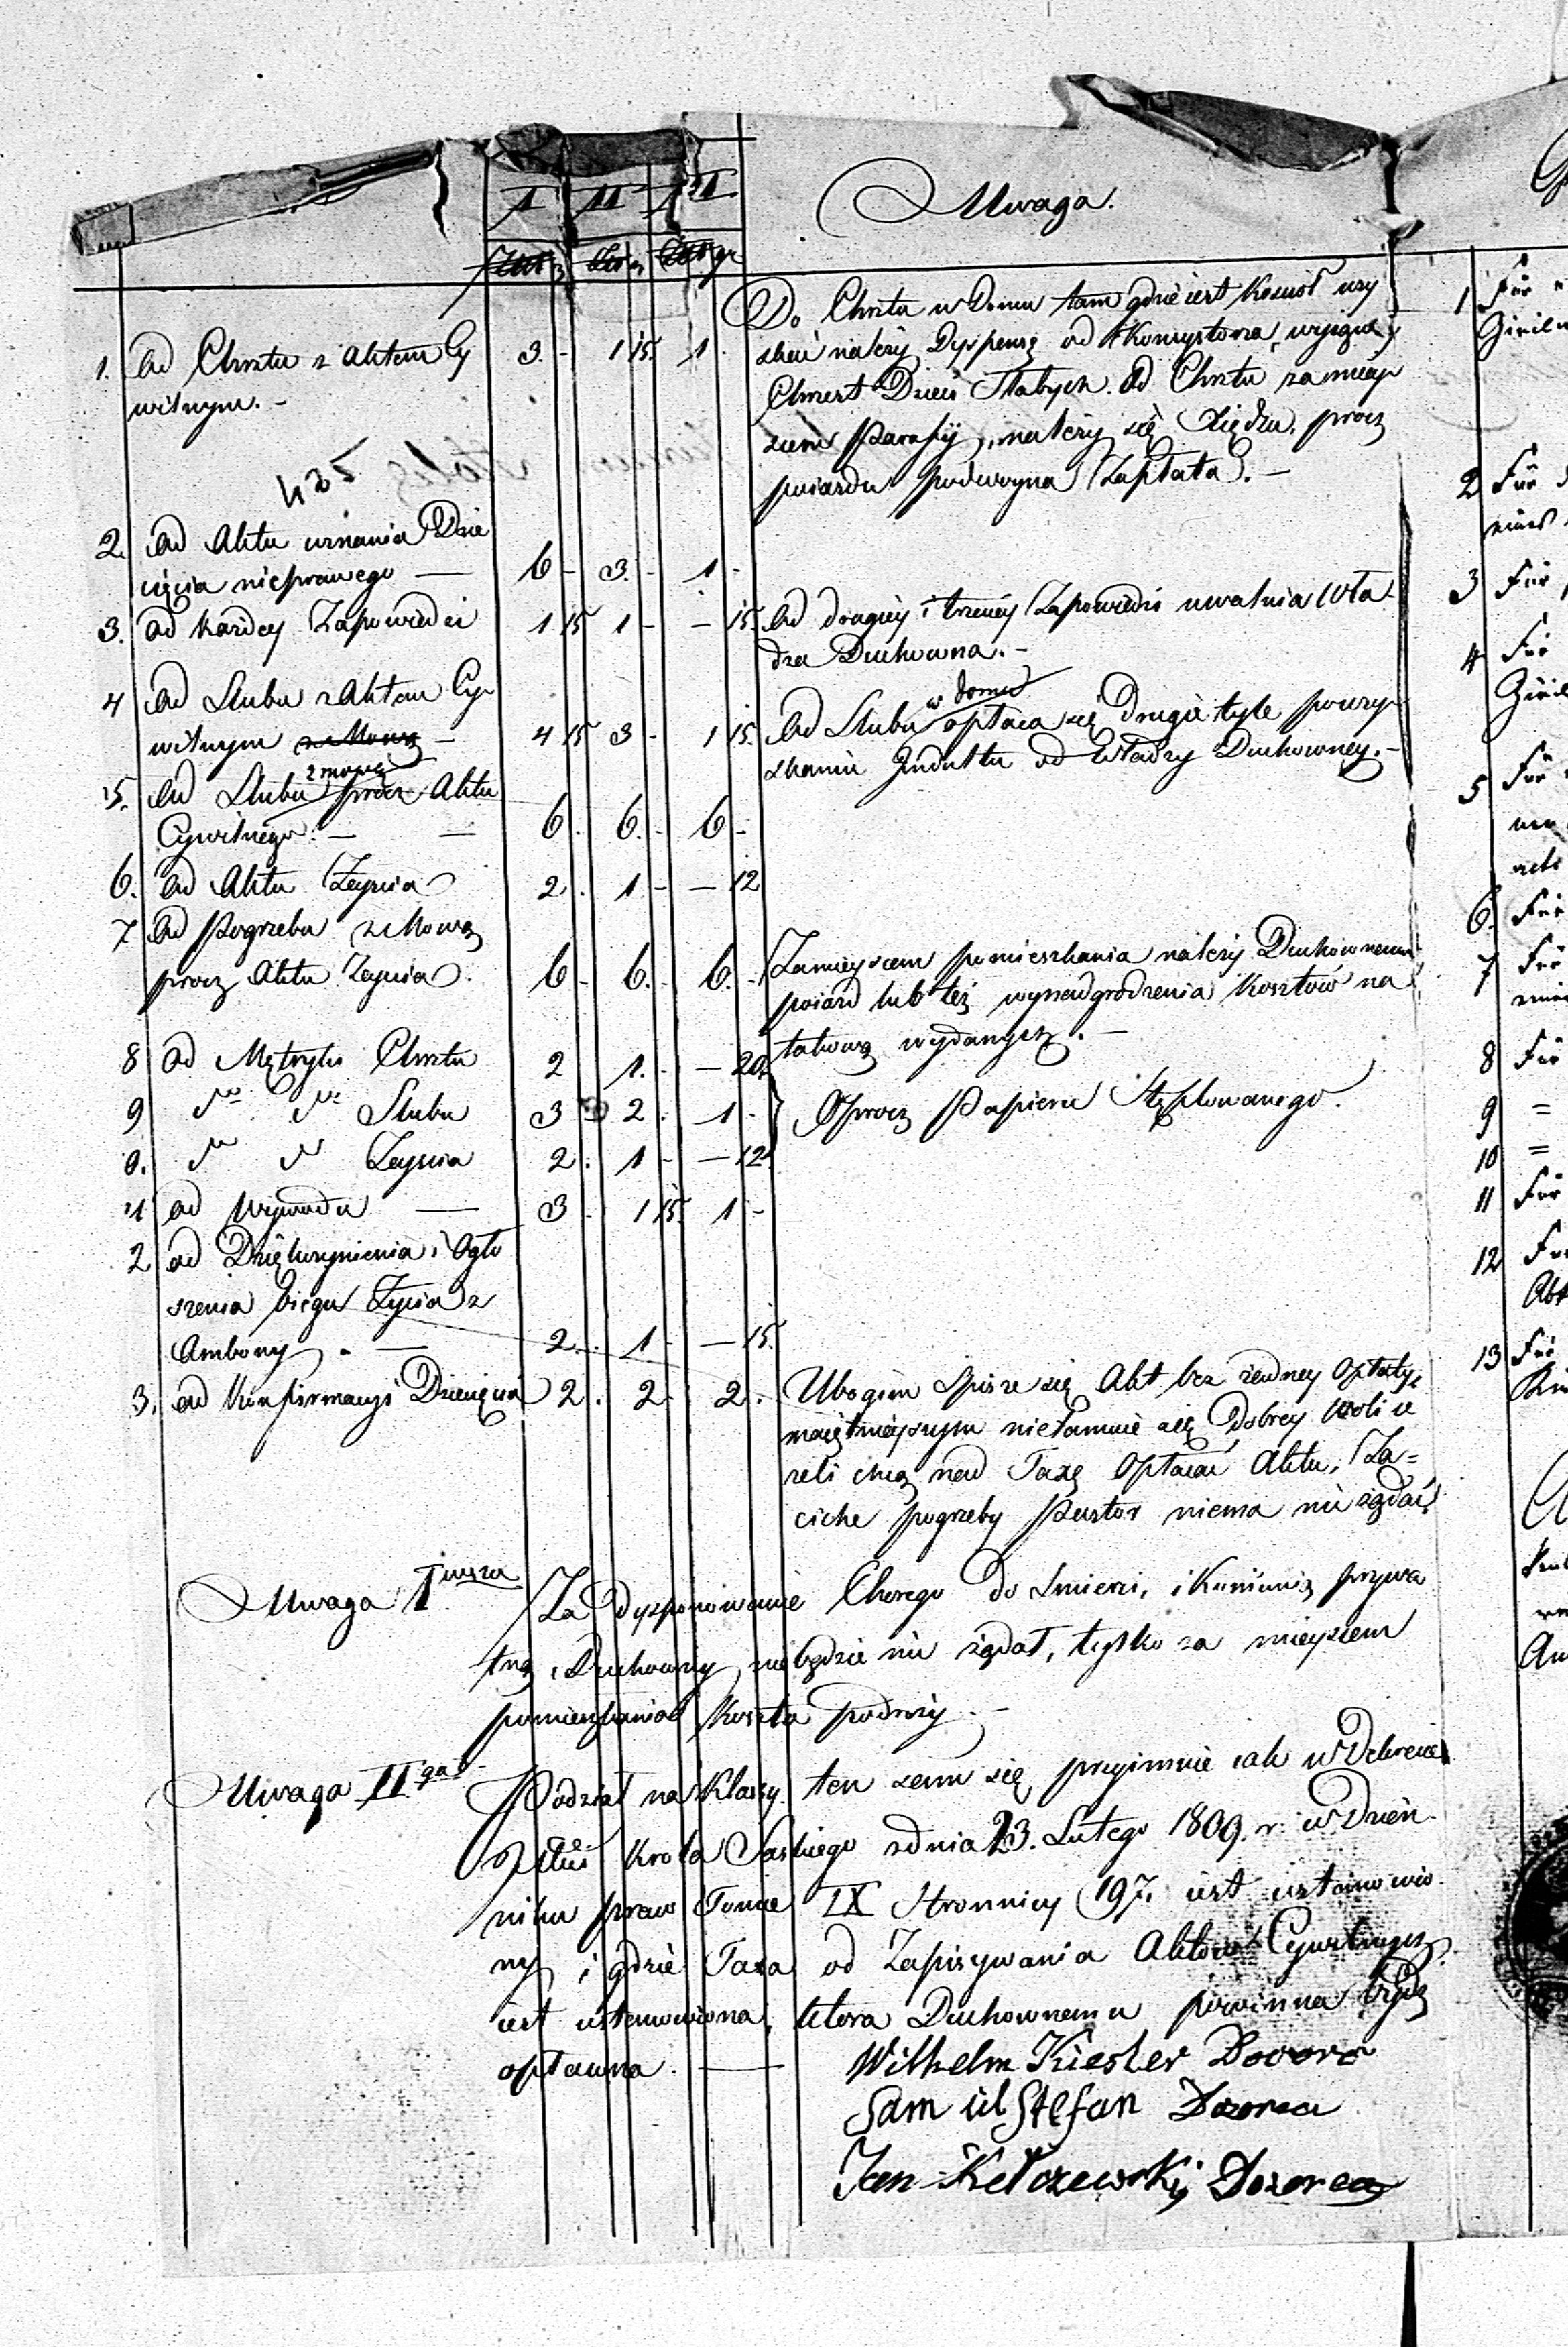 I II III
Uwaga.
Złot. gr Zło gr Złot gr
1. Od Chrztu z Aktem Cy 3. - 1 15. 1.
wilnym. -
Do Chrztu w Domu tam gdzie iest Kościoł uzy
skać należy Dyspensę od Konsystorza, wyjąwszy
Chrzest Dzieci Słabych. Od Chrztu za miey
scem Parafij, należy się Xiędzu, procz
poiazdu podwoyna Zapłata. -
2. Od Aktu uznania Dzie
cięcia nieprawego — 6 - 3. - 1 -
3. od każdey Zapowiedzi 1 15 1 - - 15.
Od drugiey i trzeciey Zapowiedzi uwalnia Wła
dza Duchowna. -
4 Od Slubu z Aktem Cy
wilnym z Mową - 4 15 3 - 1 15.
w domu
Od Slubu opłaca się Drugie tyle pouzy
skaniu Indultu od Władzy Duchowney. -
z mową
5. Od Slubu procz Aktu
Cywilnego. — 6. 6. - 6 -
6. od Aktu Zeyscia 2. 1 - — 12
7 Od Pogrzebu z Mową
procz Aktu Zeyscia. 6 - 6. - 6. -
Zamieyscem pomieszkania należy Duchownemu
poiazd lub też wynadgrodzenia Kosztów na
takową wydanych. -
8 Od Mętryki Chrztu 2 1. - — 20.
9 do do Slubu 3 2. 1 -
Oprocz Papieru Stęplowanego.
0. do do Zeyscia 2. 1 - — 12
11 od Wywodu — 3 - 1 15. 1 -
2 od Dziękczynienia i Ogło
szenia biegu Życia z
Ambony. — 2. 1 - — 15.
3. od Konfirmacyi Dziecięcia 2. 2 2.
Ubogim spisze się Akt bez żadney Opłaty,
maiętnieyszym nietamuie się Dobrey Woli ie
zeli chcą nad Taxę Opłacać Aktu, Za=
ciche pogrzeby Pastor niema nic żądać.
Uwaga Iwsza Za dysponowanie Chorego do Smierci, i Kommunią prywa
tną, Duchowny niebędzie nic żądał, tylko za mieyscem
pomieszkania Koszta podroży. -
Uwaga IIga Podział na Klassy ten sam się przyimuie iak w Dekrecie
Króla Saskiego zdnia 23. Lutego 1809. r. w Dzien
niku praw Tomie IX Stronnicy 197. iest ustanowio
ny i gdzie Taxa od Zapisywania Aktów Cywilnych
iest ustanowiona, ktora Duchownemu powinna bydź
opłacona. —
Wilhelm Kiesler Dozorc
Sam iel Stefan Dozorca
Jan Kełczewskij Dozorca
1 Für
Civil
2 Für
eines
3 Für
4 Für
Civil
5 Für
6. Für
7 Für
8 Für
9 =
10 =
11 Für
12 Für
13 Für